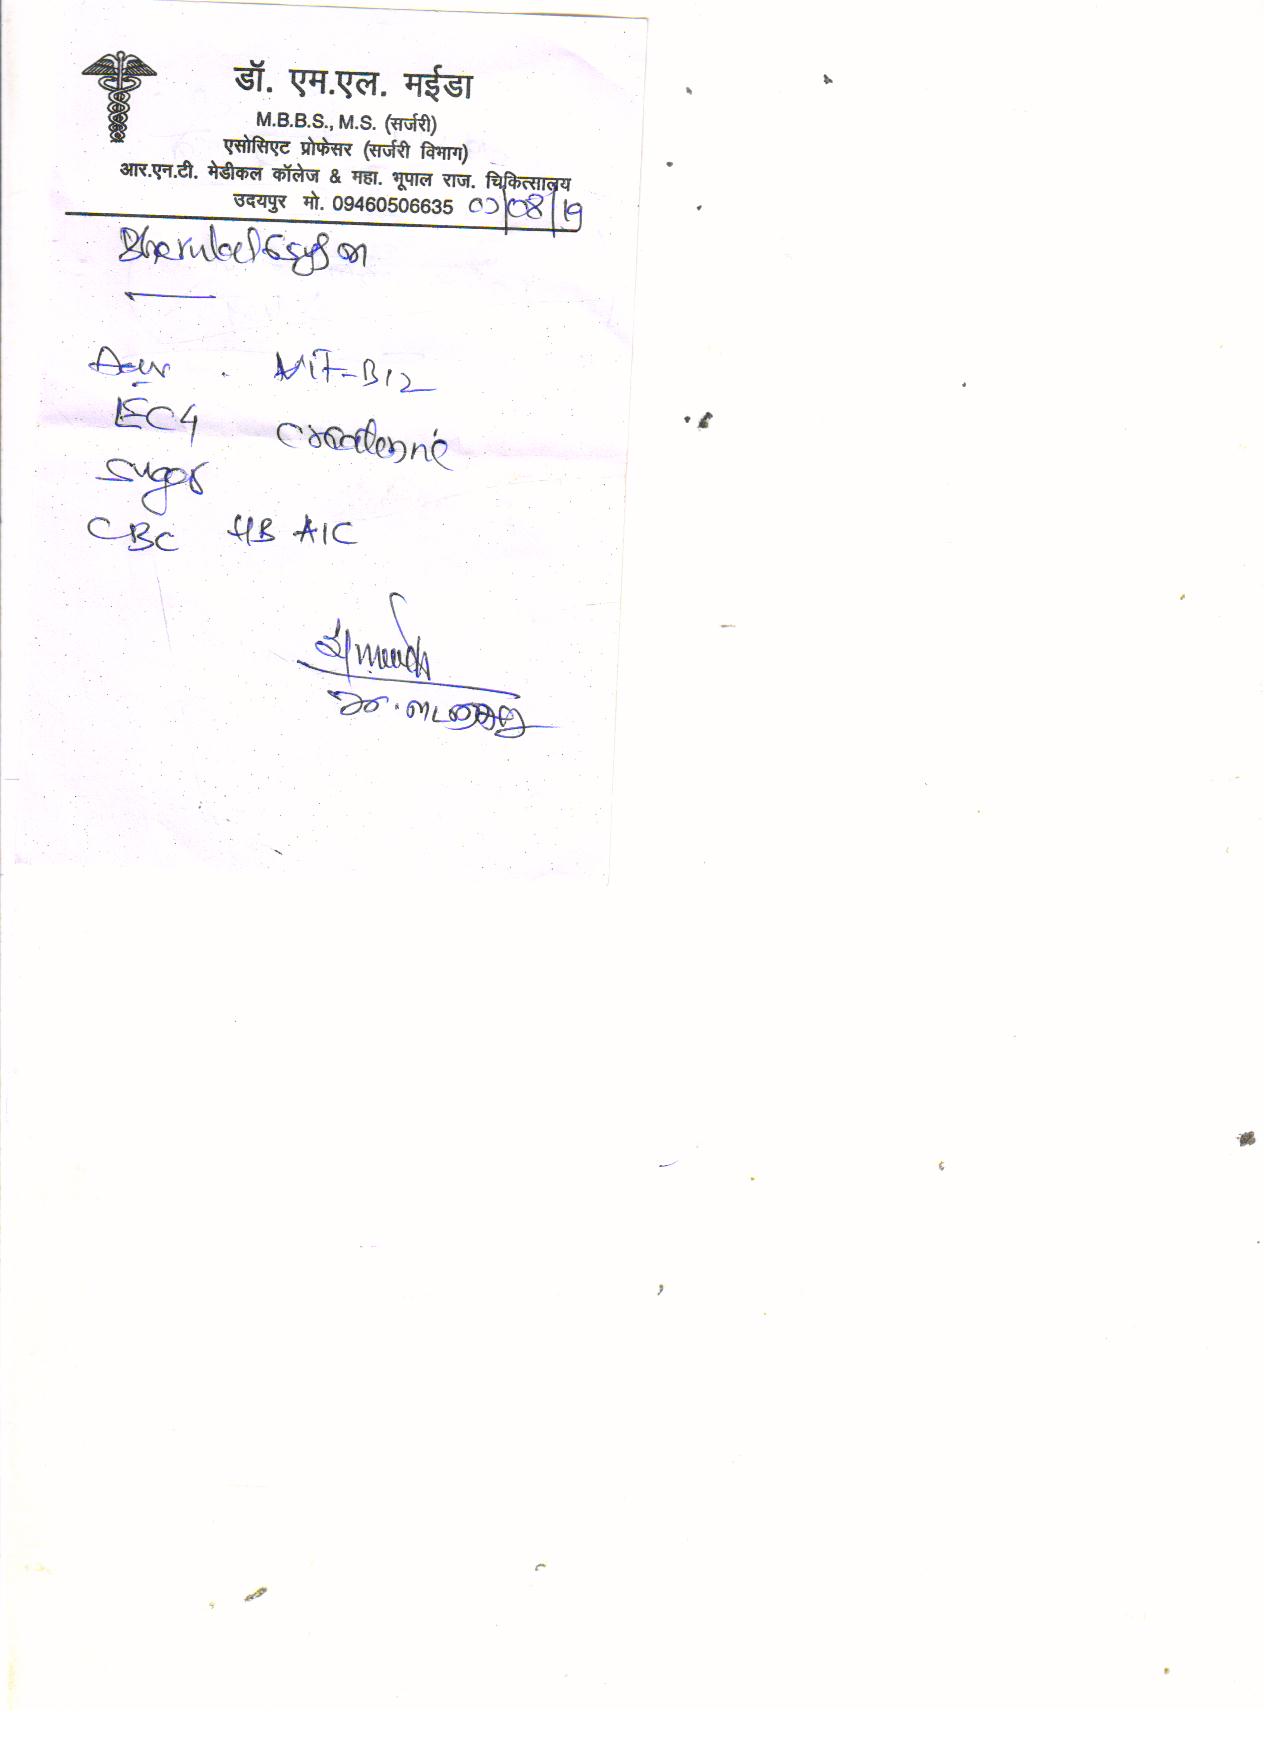 डॉ. एम.एल. मईडा
M.B.B.S., M.S. (सर्जरी)
एसोसिएट प्रोफेसर (सर्जरी विभाग)
आर.एन.टी. मेडीकल कॉलेज & महा. भूपाल राज. चिकित्सालय
उदयपुर मो. 09460506635 /08/19
VIT-B12
ECG
Sugar
CBC HB A1C